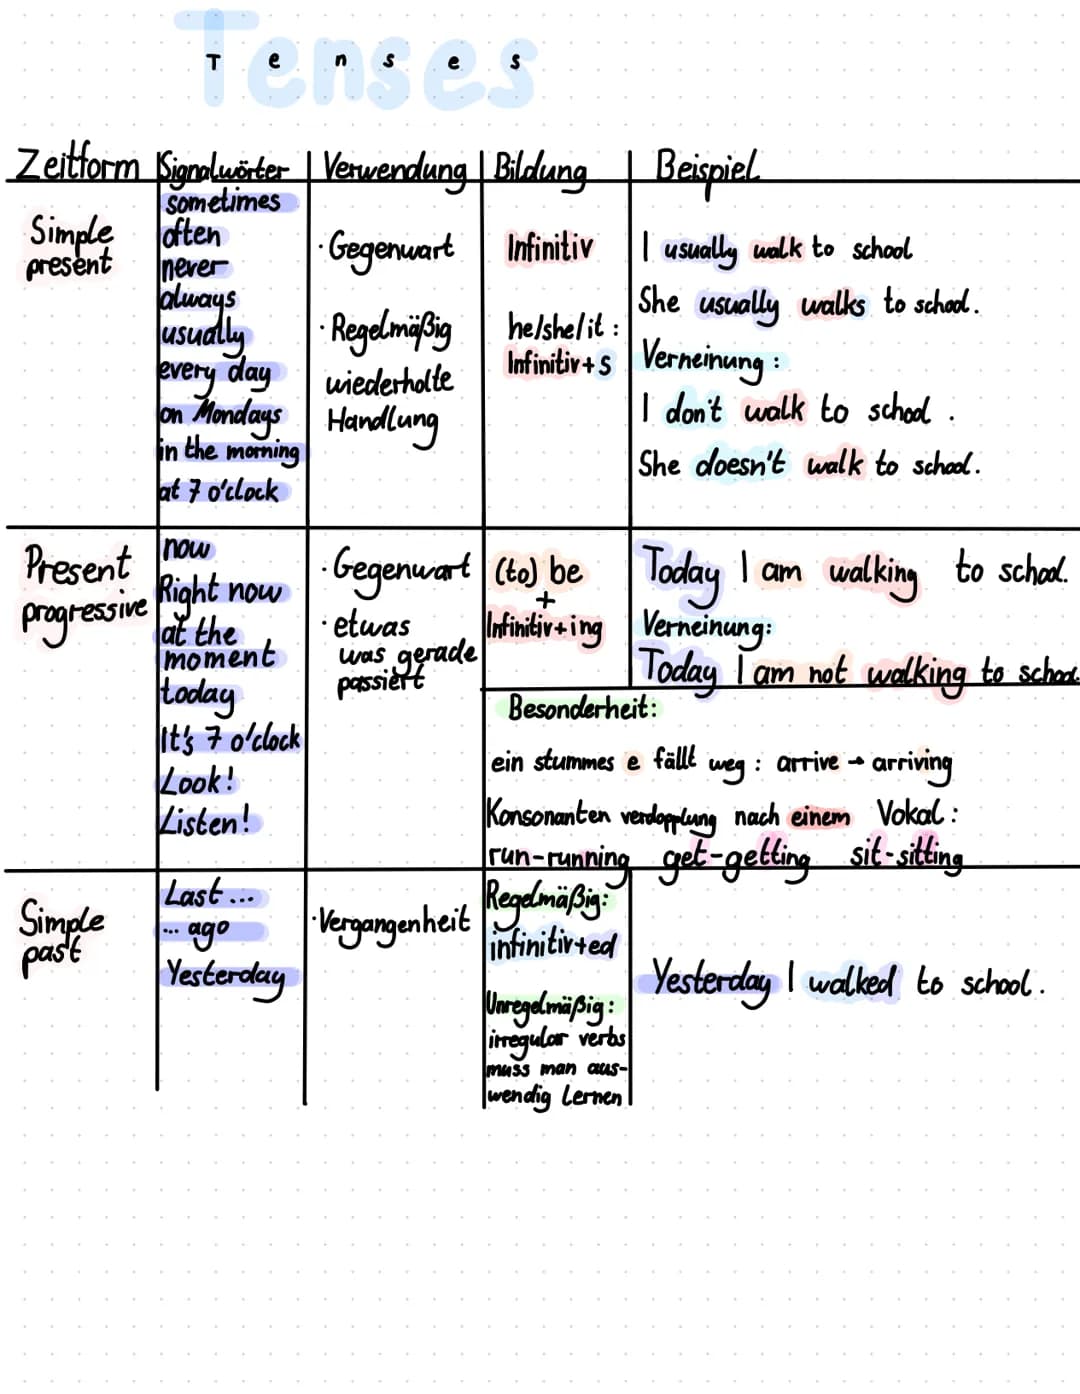 Tenses
T e n s e s
Zeitform Signalwörter Verwendung Bildung Beispiel
Simple present
sometimes
often
never
always
usually
every day
on Mondays
in the morning
at 7 o'clock
· Gegenwart
· Regelmäßig
wiederholte
Handlung
Infinitiv
he/she/it :
Infinitiv+s
I usually walk to school
She usually walks to school.
Verneinung :
I don't walk to school .
She doesn't walk to school.
Present
progressive
now
Right now
at the
moment
today
It's 7 o'clock
Look!
Listen!
· Gegenwart
· etwas
was gerade
passiert
(to) be
+
Infinitiv+ing
Today I am walking to school.
Verneinung:
Today I am not walking to school.
Besonderheit:
ein stummes e fällt weg : arrive → arriving
Konsonanten verdopplung nach einem Vokal :
run-running get-getting sit-sitting
Simple
past
Last ...
... ago
Yesterday
· Vergangenheit
Regelmäßig:
infinitiv+ed
Unregelmäßig :
irregular verbs
muss man aus-
wendig Lernen
Yesterday I walked to school .